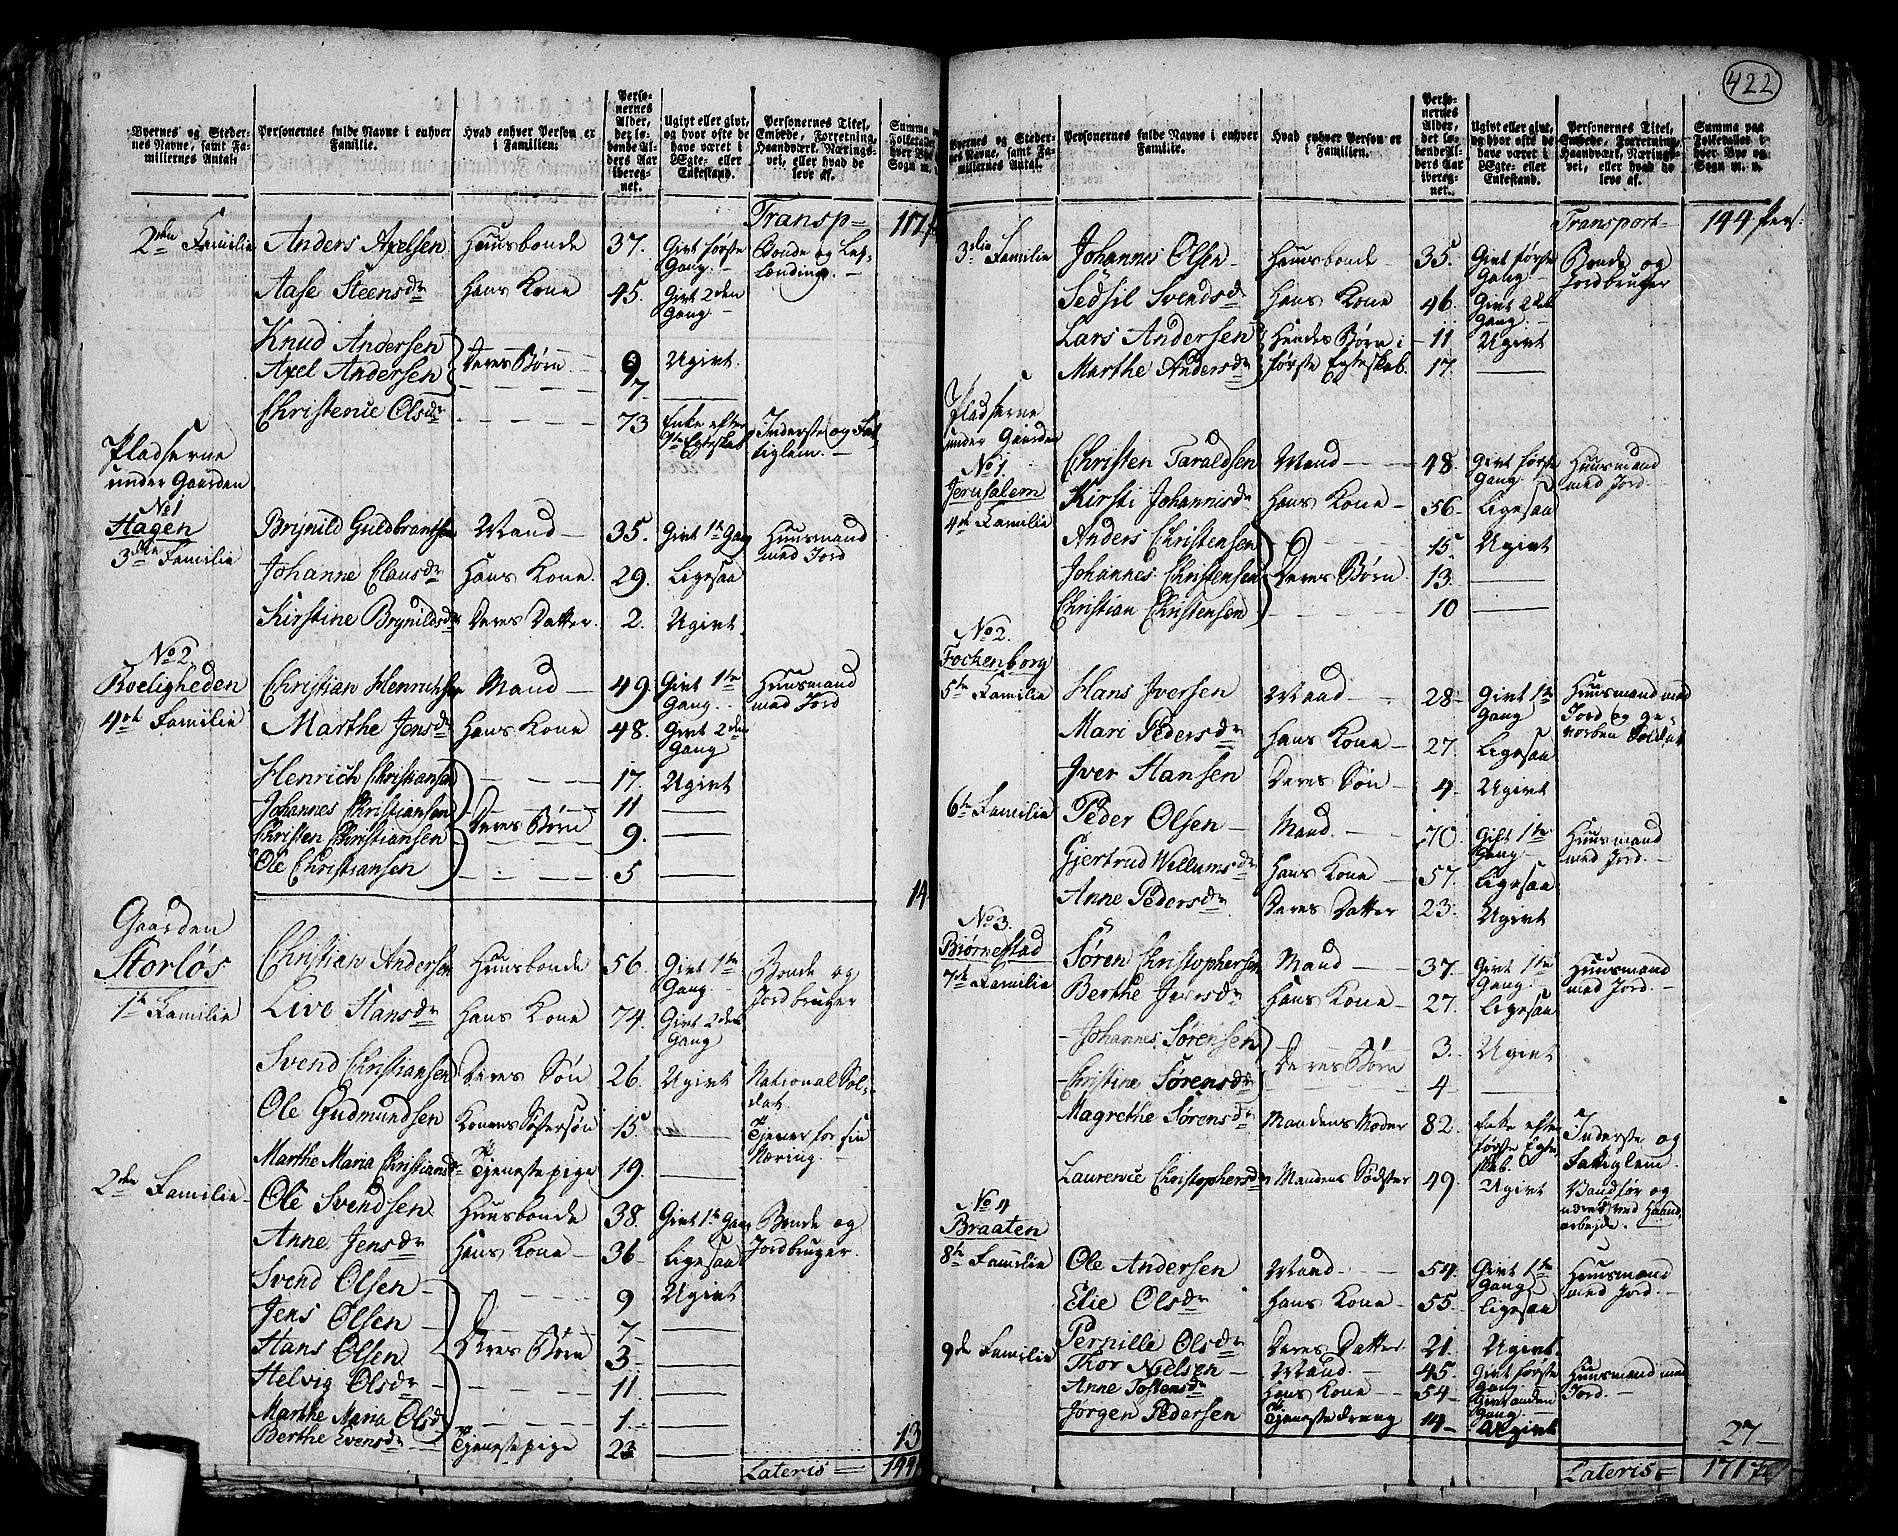 422
Byernes og Steder-
nes Navne, samt Fa-
miliernes Antal.
Personernes fulde Navne i enhver
Familie.
Hvad enhver Person er
i Familien.
Perso-
nernes
Alder,
det lø-
bende Al-
ders Aar
iberegnet.
Ugivt eller givt,
og hvor ofte de
have været i
Ægte- eller
Enkestand.
Personernes Titel,
Embede, Forretning,
Haandværk, Nærings-
vei, eller hvad de
leve af.
Summa
Folketallet
Transp- 117
2den Familie Anders Axelsen Huusbonde 37. Givt første Gang Bonde og
Aase Steensdr Hans Kone 45. Givt 2den Gang
Knud Andersen Deres Børn 9 Ugivt
Axel Andersen 7
Christence Olsdr 73 Enke efter 1te Egteskab Inderste og
Pladserne
under Gaarden
No 1
Hagen
3die Familie
Brynild Guldbrantsen Mand 35. Givt 1te Gang Huusmand med Jord
Johanne Clausdr Hans Kone 29. Ligesaa
Kirstine Brynildsdr Deres Datter 2. Ugivt
No 2
Roeligheden
4de Familie
Christian Henrichsen Mand 49. Givt 1te Gang Huusmand med Jord
Marthe Jensdr Hans Kone 48. Givt 2den Gang
Henrich Christiansen 17. Ugivt
Johannes Christiansen Deres Børn 11
Christen Christiansen 9.
Ole Christiansen 5
14
Gaarden
Storløs
1te Familie
Christian Andersen Huusbonde 56. Givt 1te Gang Bonde og Jordbruger
Live Hansdr Hans Kone 74. Givt 2den Gang
Svend Christiansen Deres Søn 26. Ugivt National Soldat
Ole Gudmundsen Konens Søstersøn 15. Tjener for sin Næring
Marthe Maria Christiansdr Tjenestepige 19.
2den Familie Ole Svendsen Huusbonde 38. Givt 1te Gang Bonde og Jordbruger
Anne Jensdr Hans Kone 36 Ligesaa
Svend Olsen 9 Ugivt
Jens Olsen 7
Hans Olsen Deres Børn 3
Helvig Olsdr 11
Marthe Maria Olsd 1
Berthe Evensdr Tjenestepige 23
13
Lateris = 144
Byernes og Steder-
nes Navne, samt Fa-
miliernes Antal.
Personernes fulde Navne i enhver
Familie.
Hvad enhver Person er
i Familien.
Perso-
nernes
Alder,
det lø-
bende Al-
ders Aar
iberegnet.
Ugivt eller givt,
og hvor ofte de
have været i
Ægte- eller
Enkestand.
Personernes Titel,
Embede, Forretning,
Haandværk, Nærings-
vei, eller hvad de
leve af.
Summa paa
Folketallet i
hver Bye og
Sogn m. v.
Transport 144 Pers:
3die Familie Johannes Olsen Huusbonde 35. Givt første Gang Bonde og Jordbruger
Sedsil Svendsdr Hans Kone 46. Givt 2den Gang
Lars Andersen Hendes Børn i 11 Ugivt
Marthe Andersdr første Egteskab. 17.
Pladserne
under Gaarden
No 1.
Jerusalem
4de Familie
Christen Taraldsen Mand 48. Givt første Gang Huusmand med Jord
Kirsti Johannisdr Hans Kone 56 Ligesaa
Anders Christensen 15 Ugivt
Johannes Christensen Deres Børn 13.
Christian Christensen 10
No 2.
Fockenborg
5te Familie Hans Iversen Mand 28 Givt 1te Gang Huusmand med Jord og gevorben Soldat
Mari Pedersdr Hans Kone 27. Ligesaa
Iver Hansen Deres Søn 4 Ugivt
6te Familie Peder Olsen Mand 70. Gift 1te Gang Huusmand med Jord
Gjertrud Willumsdr Hans Kone 57. Ligesaa
Anne Pedersdr Deres Datter 23. Ugivt
No 3.
Biørnestad
7de Familie
Søren Christophersen Mand 37. Givt 1te Gang Huusmand med Jord
Berthe Hans Kone 27. Ligesaa
Johannes Sørensen Deres Børn 3. Ugivt
Christine Sørensdr 4
Magrethe Sørensdr Mandens Moder 82. Enke efter første Egteskab Inderste og
Laurence Christophersdr Mandens Södster 49. Ugivt Vandfør og næret ved Haand arbejde.
No 4
Braaten
8de Familie
Ole Andersen Mand 54. Givt 1te Gang Huusmand med Jord.
Elie Olsdr Hans Kone 55. Ligesaa
Pernille Olsdr Deres Datter 21. Ugivt
9de Familie Thor Nielsen Mand 45. Givt første Gang Huusmand med Jord.
Anne Tostensdr Hans Kone 54 Givt anden Gang
Jørgen Pedersen Tjenestedreng 14 Ugivt
27
Lateris = 171